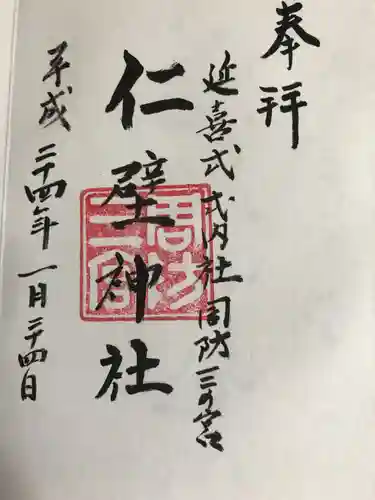 奉拝
延喜式 式内社 周防三の宮
仁壁神社
平成二十四年一月二十四日
周防
三宮